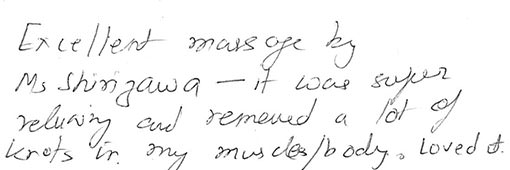 Excellent massage by
Ms Shirizawa – it was super
relaxing and removed a lot of
knots in my muscles/body. Loved it.